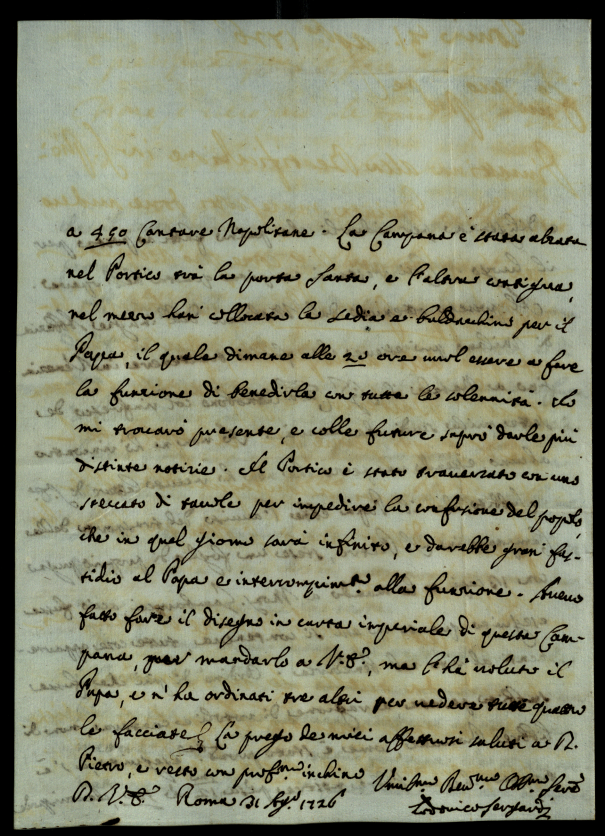 a 450 Cantare Napolitane. La Campana è stata alzata
nel Portico trà la porta Santa, e l'altra contigua,
nel mezzo han collocata la sedia e baldacchino per il
Papa il quale dimane alle 20 ore vuol essere a fare
la funzione di benedirla con tutta la solennità. Io
mi trovarò presente, e colle future saprò darle più
distinte notizie. Il Portico è stato traversato con uno
steccato di tavole per impedire la confusione del popolo,
che in quel giorno sarà infinito, e darebbe gran fas-
tidio al Papa e interrompim.to alla funzione. Avevo
fatto fare il disegno in carta imperiale di questa Cam-
pana, per mandarlo a V.S., ma l'hà voluto il
Papa, e n'ha ordinati tre altri per vedere tutte quattro
le facciate. La prego de miei affettuosi saluti a D.
Pietro, e resto con prof.mo inchino
D. V.S. Roma 31 1726 Umiliss.mo Dev.mo Obb.mo Serv.
Lodovico Sergardi